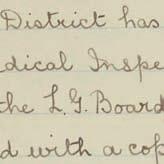 District has
dical Inspe
the L. G. Board
d with a cop